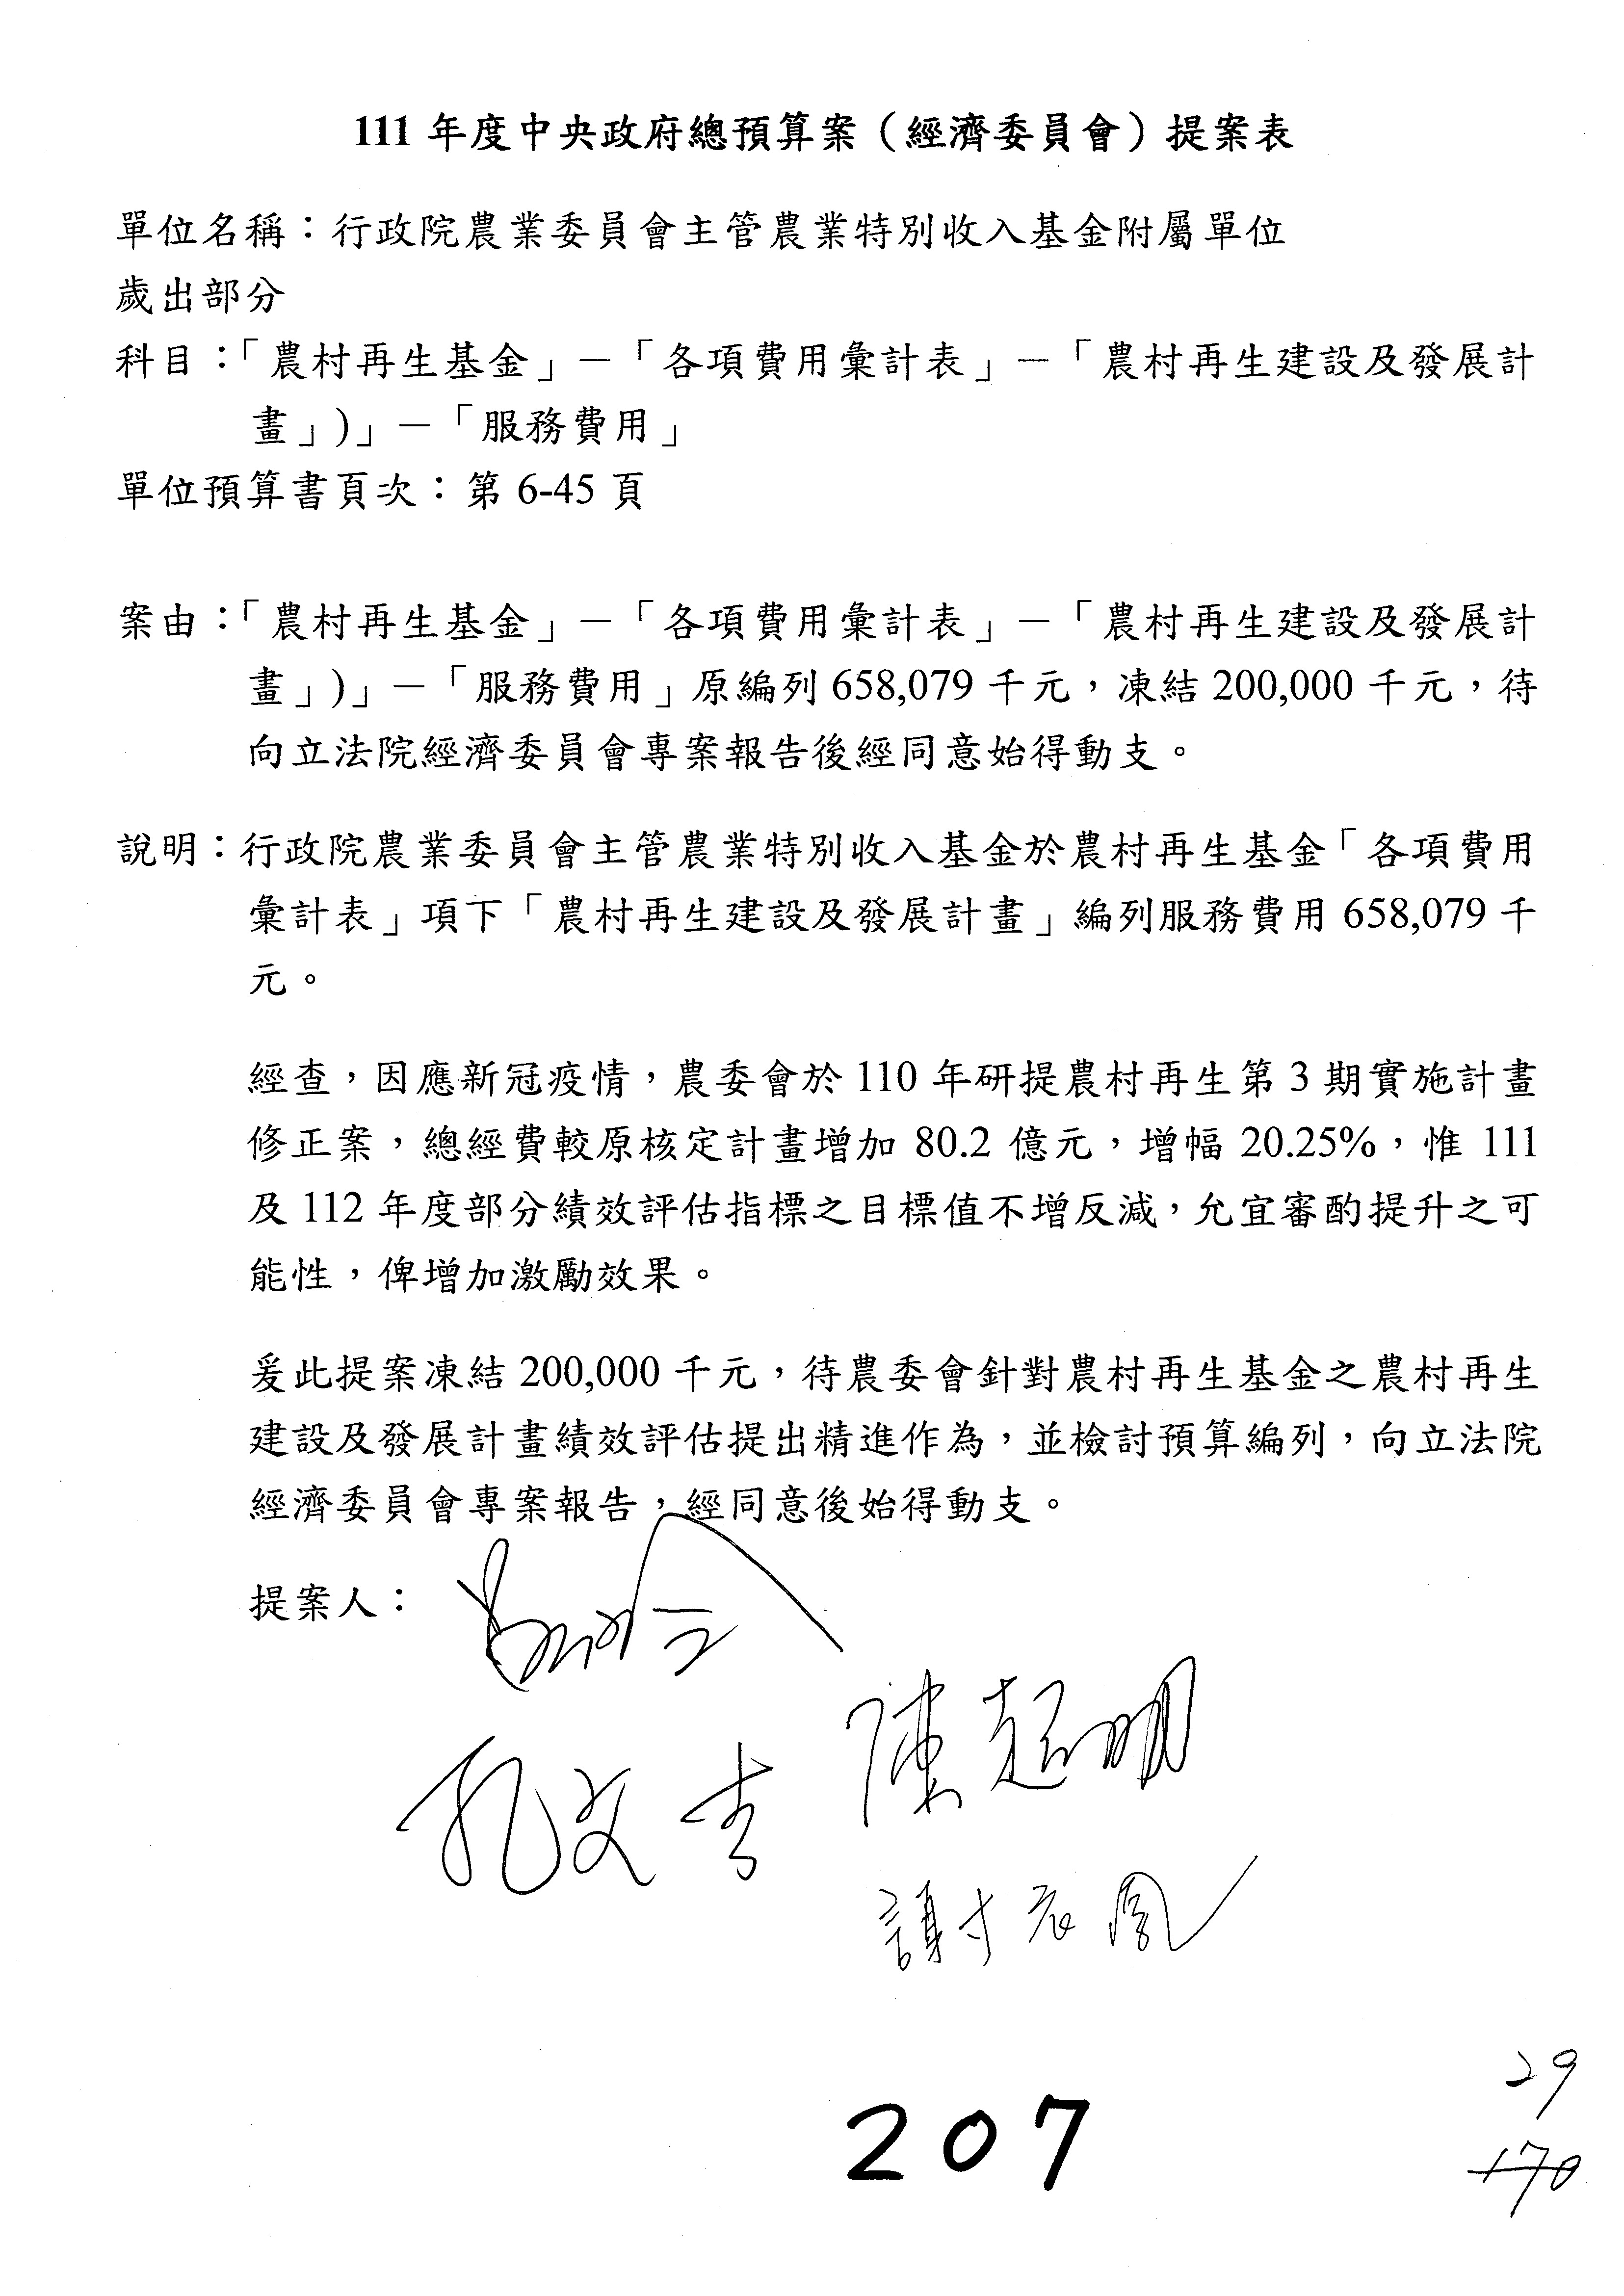 111 年度中央政府總預算案（經濟委員會）提案表
單位名稱：行政院農業委員會主管農業特別收入基金附屬單位
歲出部分
科目：「農村再生基金」－「各項費用彙計表」－「農村再生建設及發展計
畫」)」－「服務費用」
單位預算書頁次：第 6-45 頁
案由：「農村再生基金」－「各項費用彙計表」－「農村再生建設及發展計
畫」)」－「服務費用」原編列 658,079 千元，凍結 200,000 千元，待
向立法院經濟委員會專案報告後經同意始得動支。
說明：行政院農業委員會主管農業特別收入基金於農村再生基金「各項費用
彙計表」項下「農村再生建設及發展計畫」編列服務費用 658,079 千
元。
經查，因應新冠疫情，農委會於 110 年研提農村再生第 3 期實施計畫
修正案，總經費較原核定計畫增加 80.2 億元，增幅 20.25%，惟 111
及 112 年度部分績效評估指標之目標值不增反減，允宜審酌提升之可
能性，俾增加激勵效果。
爰此提案凍結 200,000 千元，待農委會針對農村再生基金之農村再生
建設及發展計畫績效評估提出精進作為，並檢討預算編列，向立法院
經濟委員會專案報告，經同意後始得動支。
提案人：
陳超明
孔文吉
謝衣鳳
29
207
170